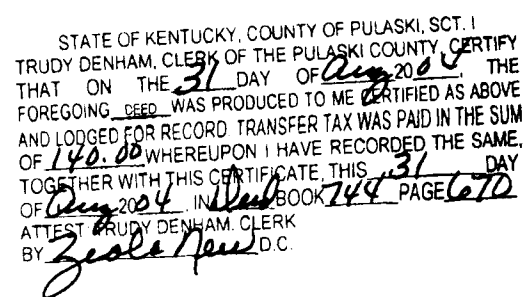 STATE OF KENTUCKY, COUNTY OF PULASKI, SCT. I
TRUDY DENHAM, CLERK OF THE PULASKI COUNTY, CERTIFY
THAT ON THE 31 DAY OF Aug 2004, THE
FOREGOING DEED WAS PRODUCED TO ME CERTIFIED AS ABOVE
AND LODGED FOR RECORD. TRANSFER TAX WAS PAID IN THE SUM
OF 140.00 WHEREUPON I HAVE RECORDED THE SAME,
TOGETHER WITH THIS CERTIFICATE, THIS 31 DAY
OF Aug 2004, IN Deed BOOK 744 PAGE 670
ATTEST TRUDY DENHAM, CLERK
BY D.C.